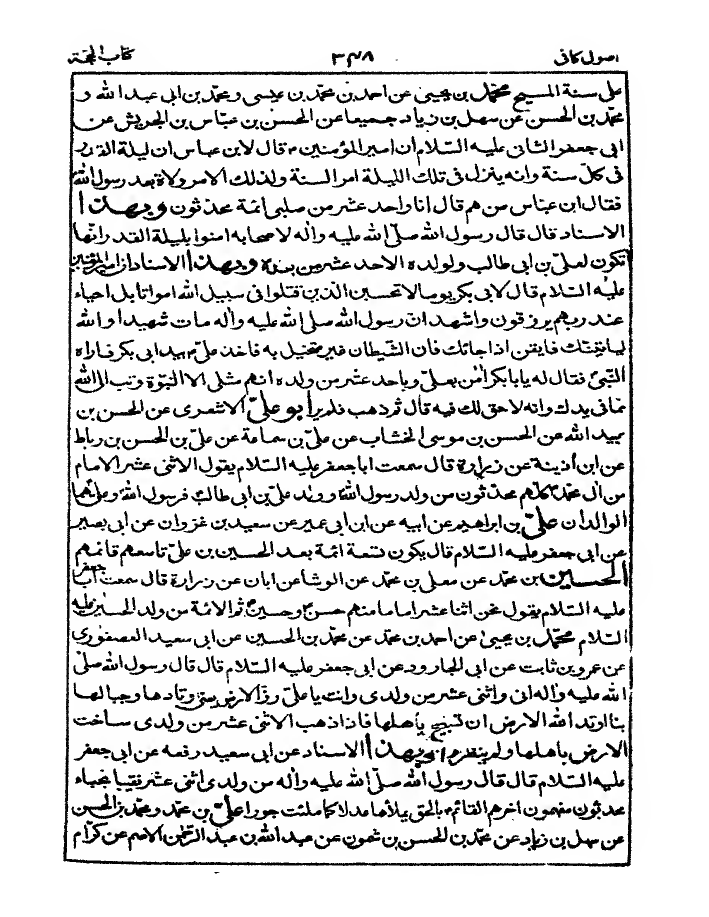 اصول کافی ٣٤٨ کتاب الحجة
على سنة المسيح محمّد بن يحيى عن احمد بن محمّد بن عيسى ومحمّد بن ابى عبد الله و
محمّد بن الحسن عن سهل بن زياد جميعا عن الحسن بن عبّاس بن الجريش عن
ابى جعفر الثانى عليه السّلام ان امير المؤمنين ع قال لابن عباس ان ليلة القدر
فى كلّ سنة وانه ينزل فى تلك الليلة امر السنة ولذلك الامر ولاة بعد رسول الله
فقال ابن عبّاس من هم قال انا واحد عشر من صلبى ائمة محدثون وبهذا
الاسناد قال قال رسول الله صلّى الله عليه واله لاصحابه امنوا بليلة القدر انّها
تكون لعلىّ بن ابى طالب ولولده الاحد عشر من بعده وبهذا الاسناد ان امير المؤمنين
عليه السّلام قال لابى بكر يوما لا تحسبن الذين قتلوا فى سبيل الله امواتا بل احياء
عند ربهم يرزقون واشهد انّ رسول الله صلى الله عليه واله مات شهيدا والله
لياتينّك فايقن اذا جائك فان الشّيطان غير متخيل به فاخذ علىّ بيد ابى بكر فاراه
النّبىّ فقال له يا بابكر امن بعلىّ وباحد عشر من ولده انهم مثلى الا النبوّة وتب الى الله
ممّا فى يدك وانه لا حق لك فيه قال ثم ذهب فلم ير ابو علىّ الاشعرى عن الحسن بن
عبيد الله عن الحسن بن موسى الخشاب عن علىّ بن سماعة عن علىّ بن الحسن بن رباط
عن ابن اذينة عن زرارة قال سمعت ابا جعفر عليه السّلام يقول الاثنى عشر الامام
من ال محمّد كلّهم محدثون من ولد رسول الله وولد علىّ بن ابى طالب فرسول الله وعلى هما
الوالدان علىّ بن ابراهيم عن ابيه عن ابن ابى عمير عن سعيد بن غزوان عن ابى بصير
عن ابى جعفر عليه السّلام قال يكون تسعة ائمة بعد الحسين بن علىّ تاسعهم قائمهم
الحسين بن محمّد عن معلى بن محمّد عن الوشا عن ابان عن زرارة قال سمعت ابا جعفر
عليه السّلام يقول نحن اثنا عشر اماما منهم حسن وحسين ثم الائمة من ولد الحسين عليه
السّلام محمّد بن يحيى عن احمد بن محمّد عن محمّد بن الحسين عن ابى سعيد العصفورى
عن عمرو بن ثابت عن ابى الجارود عن ابى جعفر عليه السّلام قال قال رسول الله صلّى
الله عليه واله انى واثنى عشر من ولدى وانت يا علىّ رزّ الارض يعنى اوتادها وجبالها
بنا اوتد الله الارض ان تسيخ باهلها فاذا ذهب الاثنى عشر من ولدى ساخت
الارض باهلها ولم ينظروا وبهذا الاسناد عن ابى سعيد رفعه عن ابى جعفر
عليه السّلام قال قال رسول الله صلّى الله عليه واله من ولدى اثنى عشر نقيبا نجباء
محدثون مفهمون اخرهم القائم بالحق يملأها عدلا كما ملئت جورا علىّ بن محمّد ومحمّد بن الحسن
عن سهل بن زياد عن محمّد بن الحسن بن شمون عن عبد الله بن عبد الرّحمن الاصم عن كرّام